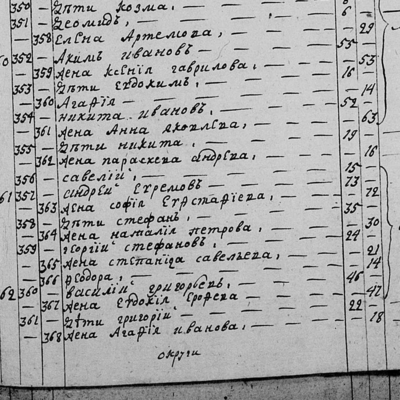 350 — дѣти козма, — — — 6
351 — Леонидъ, — — — 6
— 358 Елена Артемова, — — — 29
60 352 — Акимъ ивановъ — — — 55
— 359 жена ксенія гаврилова, — — — 53
353 — дѣти Евдокимъ, — — — 16
— 360 Агафія — — — 14
354 — никита ивановъ, — — — 52
— 361 жена Анна яковлева, — — — 63
355 — дѣти никита, — — — 19
— 362 жена параскева андрѣева, — — — 16
356 — савелій, — — — 15
61 357 — андрей Ефремовъ — — — 73
— 363 жена софія Евстафіева, — — — 72
358 — дѣти стефанъ, — — — 35
— 364 жена наталія петрова, — — — 30
359 — георгій стефановъ, — — — 24
— 365 жена степанида савельева, — — — 21
— 366 Ѳеодора, — — — 14
62 360 — василій григорьевъ, — — — 46
— 367 жена Евдокія Ерофеева — — — 47
361 — дѣти григорій — — — 22
— 368 жена Агафія иванова, — — — 18
округи